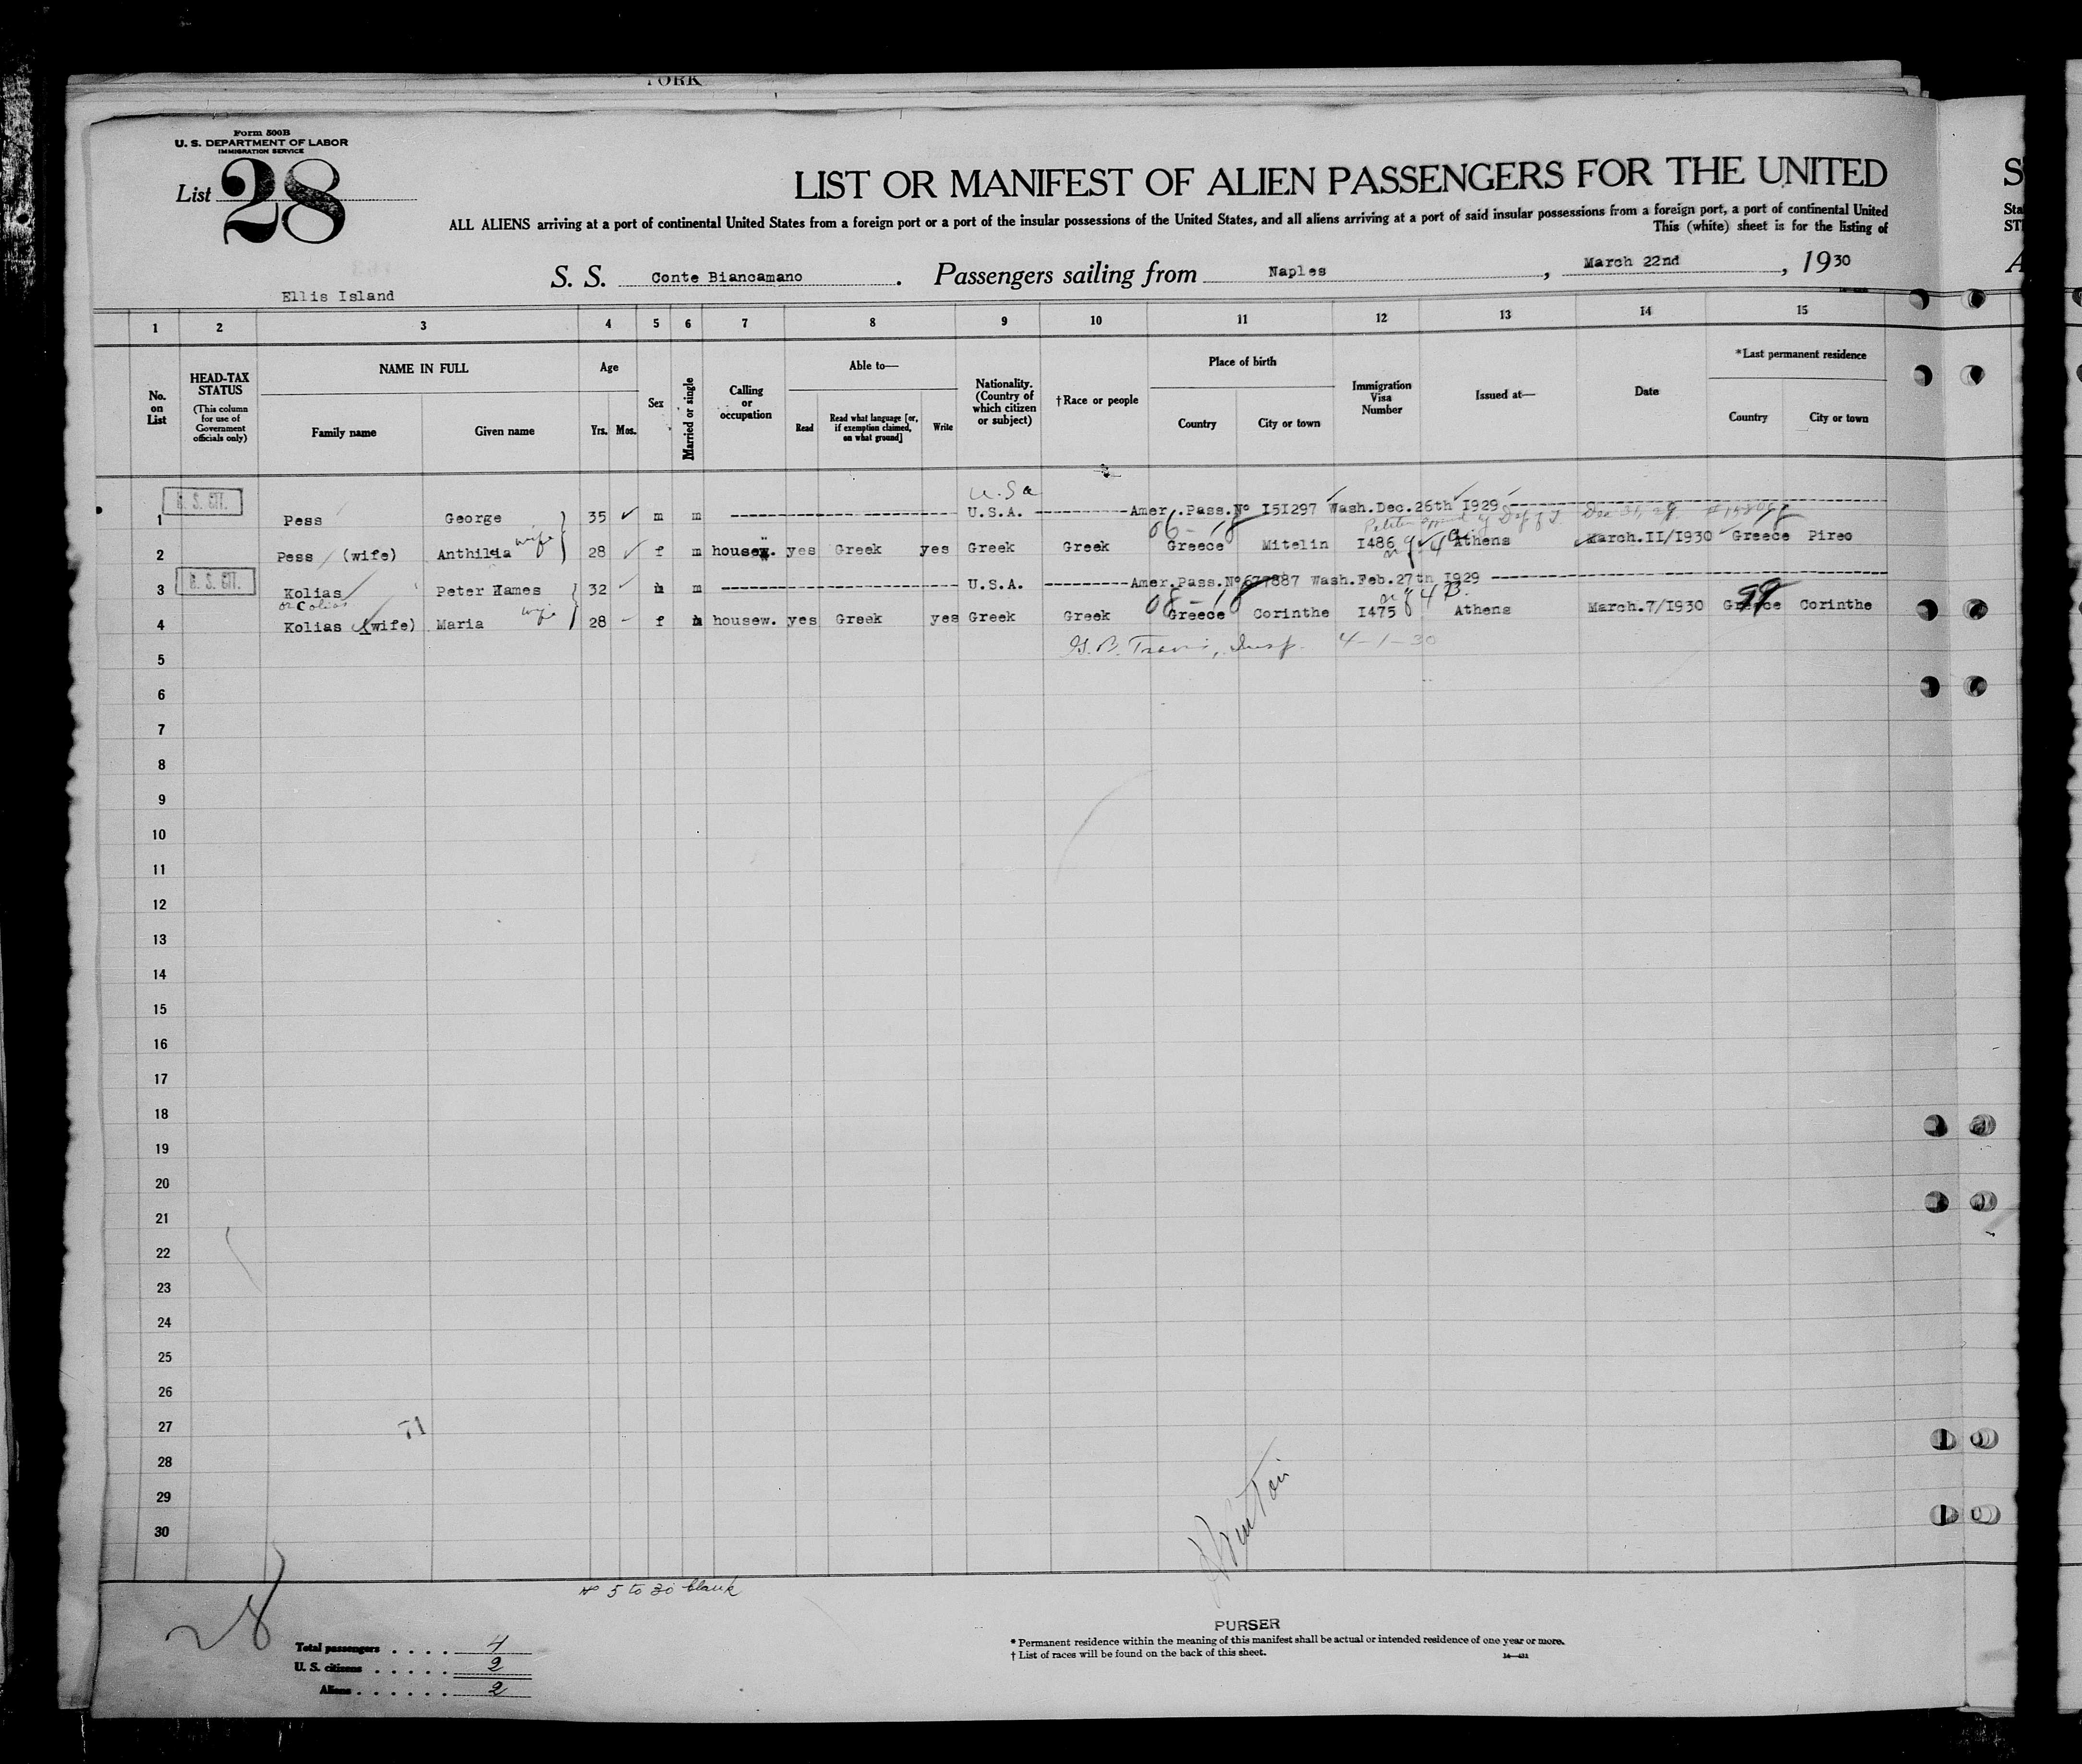 YORK
Form 500B
U. S. DEPARTMENT OF LABOR
IMMIGRATION SERVICE
List 28
LIST OR MANIFEST OF ALIEN PASSENGERS FOR THE UNITED
ALL ALIENS arriving at a port of continental United States from a foreign port or a port of the insular possessions of the United States, and all aliens arriving at a port of said insular possessions from a foreign port, a port of continental United
This (white) sheet is for the listing of
S. S. Conte Biancamano. Passengers sailing from Naples, March 22nd, 1930
Ellis Island
1 2 3 4 5 6 7 8 9 10 11 12 13 14 15
No. on List
HEAD-TAX STATUS
(This column for use of Government officials only)
NAME IN FULL
Family name Given name
Age
Yrs. Mos.
Sex
Married or single
Calling or occupation
Able to—
Read Read what language [or, if exemption claimed, on what ground] Write
Nationality. (Country of which citizen or subject)
†Race or people
Place of birth
Country City or town
Immigration Visa Number
Issued at—
Date
*Last permanent residence
Country City or town
U.S.a
1 U. S. CIT. Pess George 35 m m U.S.A. Amer.Pass.Nº I5I297 Wash.Dec.26th I929
2 Pess (wife) Anthilia wife 28 f m housew. yes Greek yes Greek Greek Greece Mitelin I486 Athens March.II/I930 Greece Pireo
3 U. S. CIT. Kolias Peter Hames 32 m m U.S.A. Amer.Pass.Nº677887 Wash.Feb.27th I929
or Colias
4 Kolias (wife) Maria wife 28 f m housew. yes Greek yes Greek Greek Greece Corinthe I475 Athens March.7/I930 Greece Corinthe
5 Insp. 4-1-30
6
7
8
9
10
11
12
13
14
15
16
17
18
19
20
21
22
23
24
25
26
27
71
28
29
30
Nº 5 to 30 blank
28
Total passengers 4
U. S. citizens 2
Aliens 2
PURSER
* Permanent residence within the meaning of this manifest shall be actual or intended residence of one year or more.
† List of races will be found on the back of this sheet.